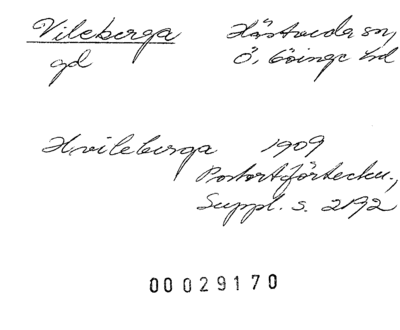 Vileberga Hästveda sn,
gd Ö. Göinge hd
Hvileberga 1909
Postortförteckn.,
Suppl. s. 2192
00029170